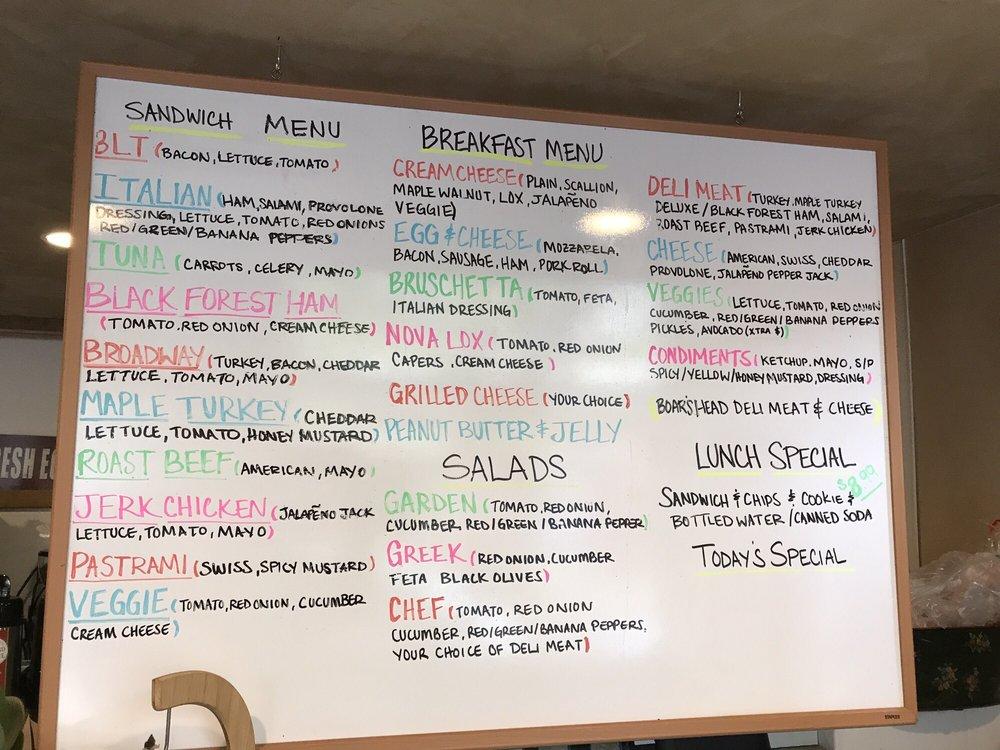 SANDWICH MENU
BLT (BACON, LETTUCE, TOMATO)
ITALIAN (HAM, SALAMI, PROVOLONE
DRESSING, LETTUCE, TOMATO, RED ONIONS
RED/GREEN/BANANA PEPPERS)
TUNA (CARROTS, CELERY, MAYO)
BLACK FOREST HAM
(TOMATO, RED ONION, CREAM CHEESE)
BROADWAY (TURKEY, BACON, CHEDDAR
LETTUCE, TOMATO, MAYO)
MAPLE TURKEY (CHEDDAR
LETTUCE, TOMATO, HONEY MUSTARD)
ROAST BEEF (AMERICAN, MAYO)
JERK CHICKEN (JALAPEÑO JACK
LETTUCE, TOMATO, MAYO)
PASTRAMI (SWISS, SPICY MUSTARD)
VEGGIE (TOMATO, RED ONION, CUCUMBER
CREAM CHEESE)
BREAKFAST MENU
CREAM CHEESE (PLAIN, SCALLION,
MAPLE WALNUT, LOX, JALAPEÑO
VEGGIE)
EGG & CHEESE (MOZZARELA,
BACON, SAUSAGE, HAM, PORK ROLL)
BRUSCHETTA (TOMATO, FETA,
ITALIAN DRESSING)
NOVA LOX (TOMATO, RED ONION
CAPERS, CREAM CHEESE)
GRILLED CHEESE (YOUR CHOICE)
PEANUT BUTTER & JELLY
SALADS
GARDEN (TOMATO, RED ONION,
CUCUMBER, RED/GREEN/BANANA PEPPER)
GREEK (RED ONION, CUCUMBER
FETA BLACK OLIVES)
CHEF (TOMATO, RED ONION
CUCUMBER, RED/GREEN/BANANA PEPPERS,
YOUR CHOICE OF DELI MEAT)
DELI MEAT (TURKEY, MAPLE TURKEY
DELUXE/BLACK FOREST HAM, SALAMI,
ROAST BEEF, PASTRAMI, JERK CHICKEN)
CHEESE (AMERICAN, SWISS, CHEDDAR
PROVOLONE, JALAPEÑO PEPPER JACK)
VEGGIES (LETTUCE, TOMATO, RED ONION
CUCUMBER, RED/GREEN/BANANA PEPPERS
PICKLES, AVOCADO (XTRA $))
CONDIMENTS (KETCHUP, MAYO, S/P
SPICY/YELLOW/HONEY MUSTARD, DRESSING)
(BOAR'S HEAD DELI MEAT & CHEESE)
LUNCH SPECIAL
$8.99
SANDWICH & CHIPS & COOKIE &
BOTTLED WATER / CANNED SODA
TODAY'S SPECIAL
STAPLES